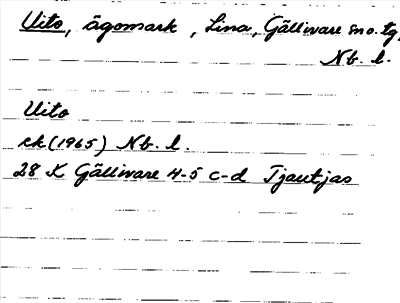 Uito, ägomark, Lina, Gällivare sno. tg,
Nb. l.
Uito
ek (1965) Nb. l.
28 K Gällivare 4-5 c-d Tjautjas